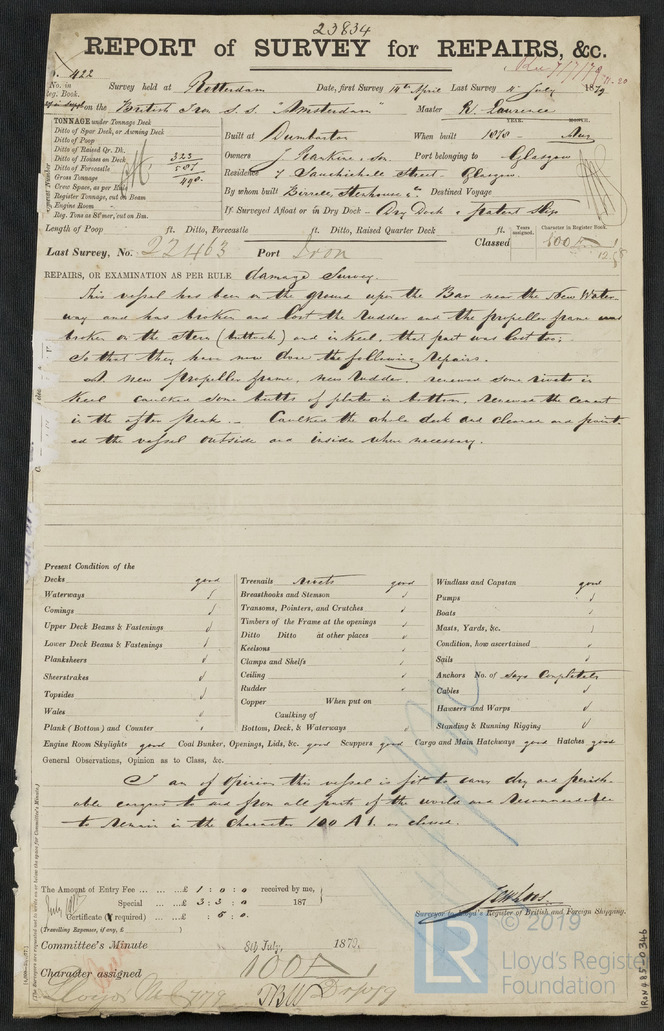 23834
REPORT of SURVEY for REPAIRS, &c.
No. 422 Survey held at Rotterdam Date, first Survey 14th April Last Survey 4th July 1879
No. in Reg. Book.
on the British Iron S.S. "Amsterdam" Master R. Laurence
TONNAGE under Tonnage Deck
Ditto of Spar Deck, or Awning Deck
Ditto of Poop
Ditto of Raised Qr. Dk.
Ditto of Houses on Deck 323
Ditto of Forecastle
Gross Tonnage
Crew Space, as per Rule 490
Register Tonnage, cut on Beam
Engine Room
Reg. Tons as St'mer, cut on Bm.
YEAR. MONTH.
Built at Dumbarton When built 1878 - Aug
Owners J. Rankine & Son Port belonging to Glasgow
Residence 7 Sauchiehall Street - Glasgow
By whom built Birrell, Stenhouse & Co. Destined Voyage
If Surveyed Afloat or in Dry Dock - Dry Dock & patent slip
Length of Poop ft. Ditto, Forecastle ft. Ditto, Raised Quarter Deck ft.
Years assigned. Character in Register Book.
Last Survey, No. 22463 Port Iron Classed 100 A 1
REPAIRS, OR EXAMINATION AS PER RULE damage Survey.
This vessel has been on the ground upon the Bar near the New Water-
way and has broken and lost the rudder and the propeller frame was
broken on the Stern (buttock) and in Keel, that part was lost too;
So that they have now done the following repairs.
A new propeller frame, new rudder, renewed some rivets in
Keel caulked some butts of plates in bottom, renewed the cement
in the after peak. - Caulked the whole deck and cleaned and paint-
ed the vessel outside and inside when necessary.
Present Condition of the
Decks good
Waterways
Comings
Upper Deck Beams & Fastenings
Lower Deck Beams & Fastenings
Planksheers
Sheerstrakes
Topsides
Wales
Plank (Bottom) and Counter
Treenails Rivets good
Breasthooks and Stemson
Transoms, Pointers, and Crutches
Timbers of the Frame at the openings
Ditto Ditto at other places
Keelsons
Clamps and Shelfs
Ceiling
Rudder
Copper When put on
Caulking of
Bottom, Deck, & Waterways
Windlass and Capstan good
Pumps
Boats
Masts, Yards, &c.
Condition, how ascertained
Sails
Anchors No. of Completely
Cables
Hawsers and Warps
Standing & Running Rigging
Engine Room Skylights good Coal Bunker, Openings, Lids, &c. good Scuppers good Cargo and Main Hatchways good Hatches good
General Observations, Opinion as to Class, &c.
I am of Opinion this vessel is fit to carry dry and perish-
able cargoes to and from all parts of the world and recommendable
to remain in the Character 100 A 1. as classed.
The Amount of Entry Fee ... £ 1 : 0 : 0 received by me,
Special ... £ 3 : 3 : 0 187
Certificate (if required) ... £ : 5 : 0
(Travelling Expenses, if any, £ )
Surveyor to Lloyd's Register of British and Foreign Shipping.
Committee's Minute 8th July, 1879.
Character assigned 100 A 1
© 2019
LR
Lloyd's Register
Foundation
IRON485-0346